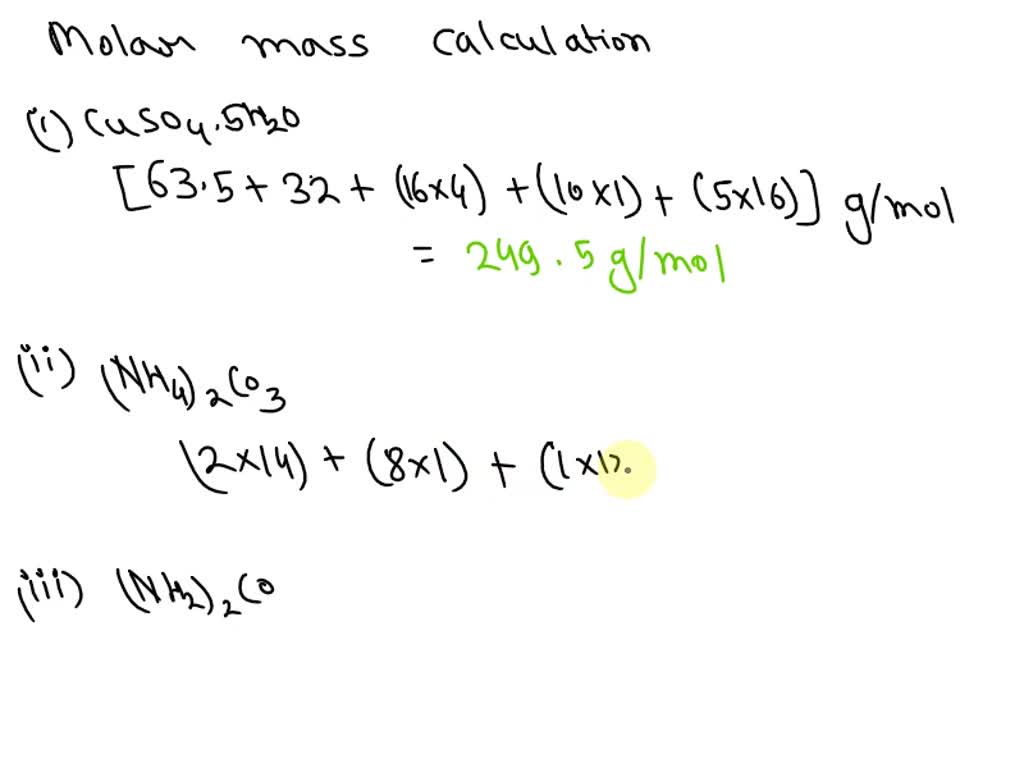 Molar mass calculation
(i) CuSO4.5H2O
[63.5 + 32 + (16x4) + (10x1) + (5x16)] g/mol
= 249.5 g/mol
(ii) (NH4)2CO3
(2x14) + (8x1) + (1x12
(iii) (NH2)2CO